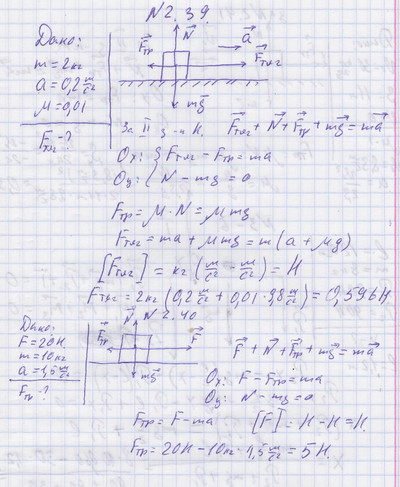 N 2.39.
Дано:
m = 2кг
a = 0,2 м/с²
μ = 0,01
Fтяг - ?
N
a
Fтр
Fтяг
mg
За II з-н Н. Fтяг + N + Fтр + mg = ma
Ox: { Fтяг - Fтр = ma
Oy: { N - mg = 0
Fтр = μ · N = μmg
Fтяг = ma + μmg = m(a + μg)
[Fтяг] = кг (м/с² - м/с²) = Н
Fтяг = 2кг (0,2 м/с² + 0,01 · 9,8 м/с²) = 0,596Н
N 2.40
Дано:
F = 20Н
m = 10кг
a = 1,5 м/с²
Fтр - ?
N
Fтр
F
mg
F + N + Fтр + mg = ma
Ox: F - Fтр = ma
Oy: N - mg = 0
Fтр = F - ma [F] = Н - Н = Н.
Fтр = 20Н - 10кг · 1,5 м/с² = 5Н